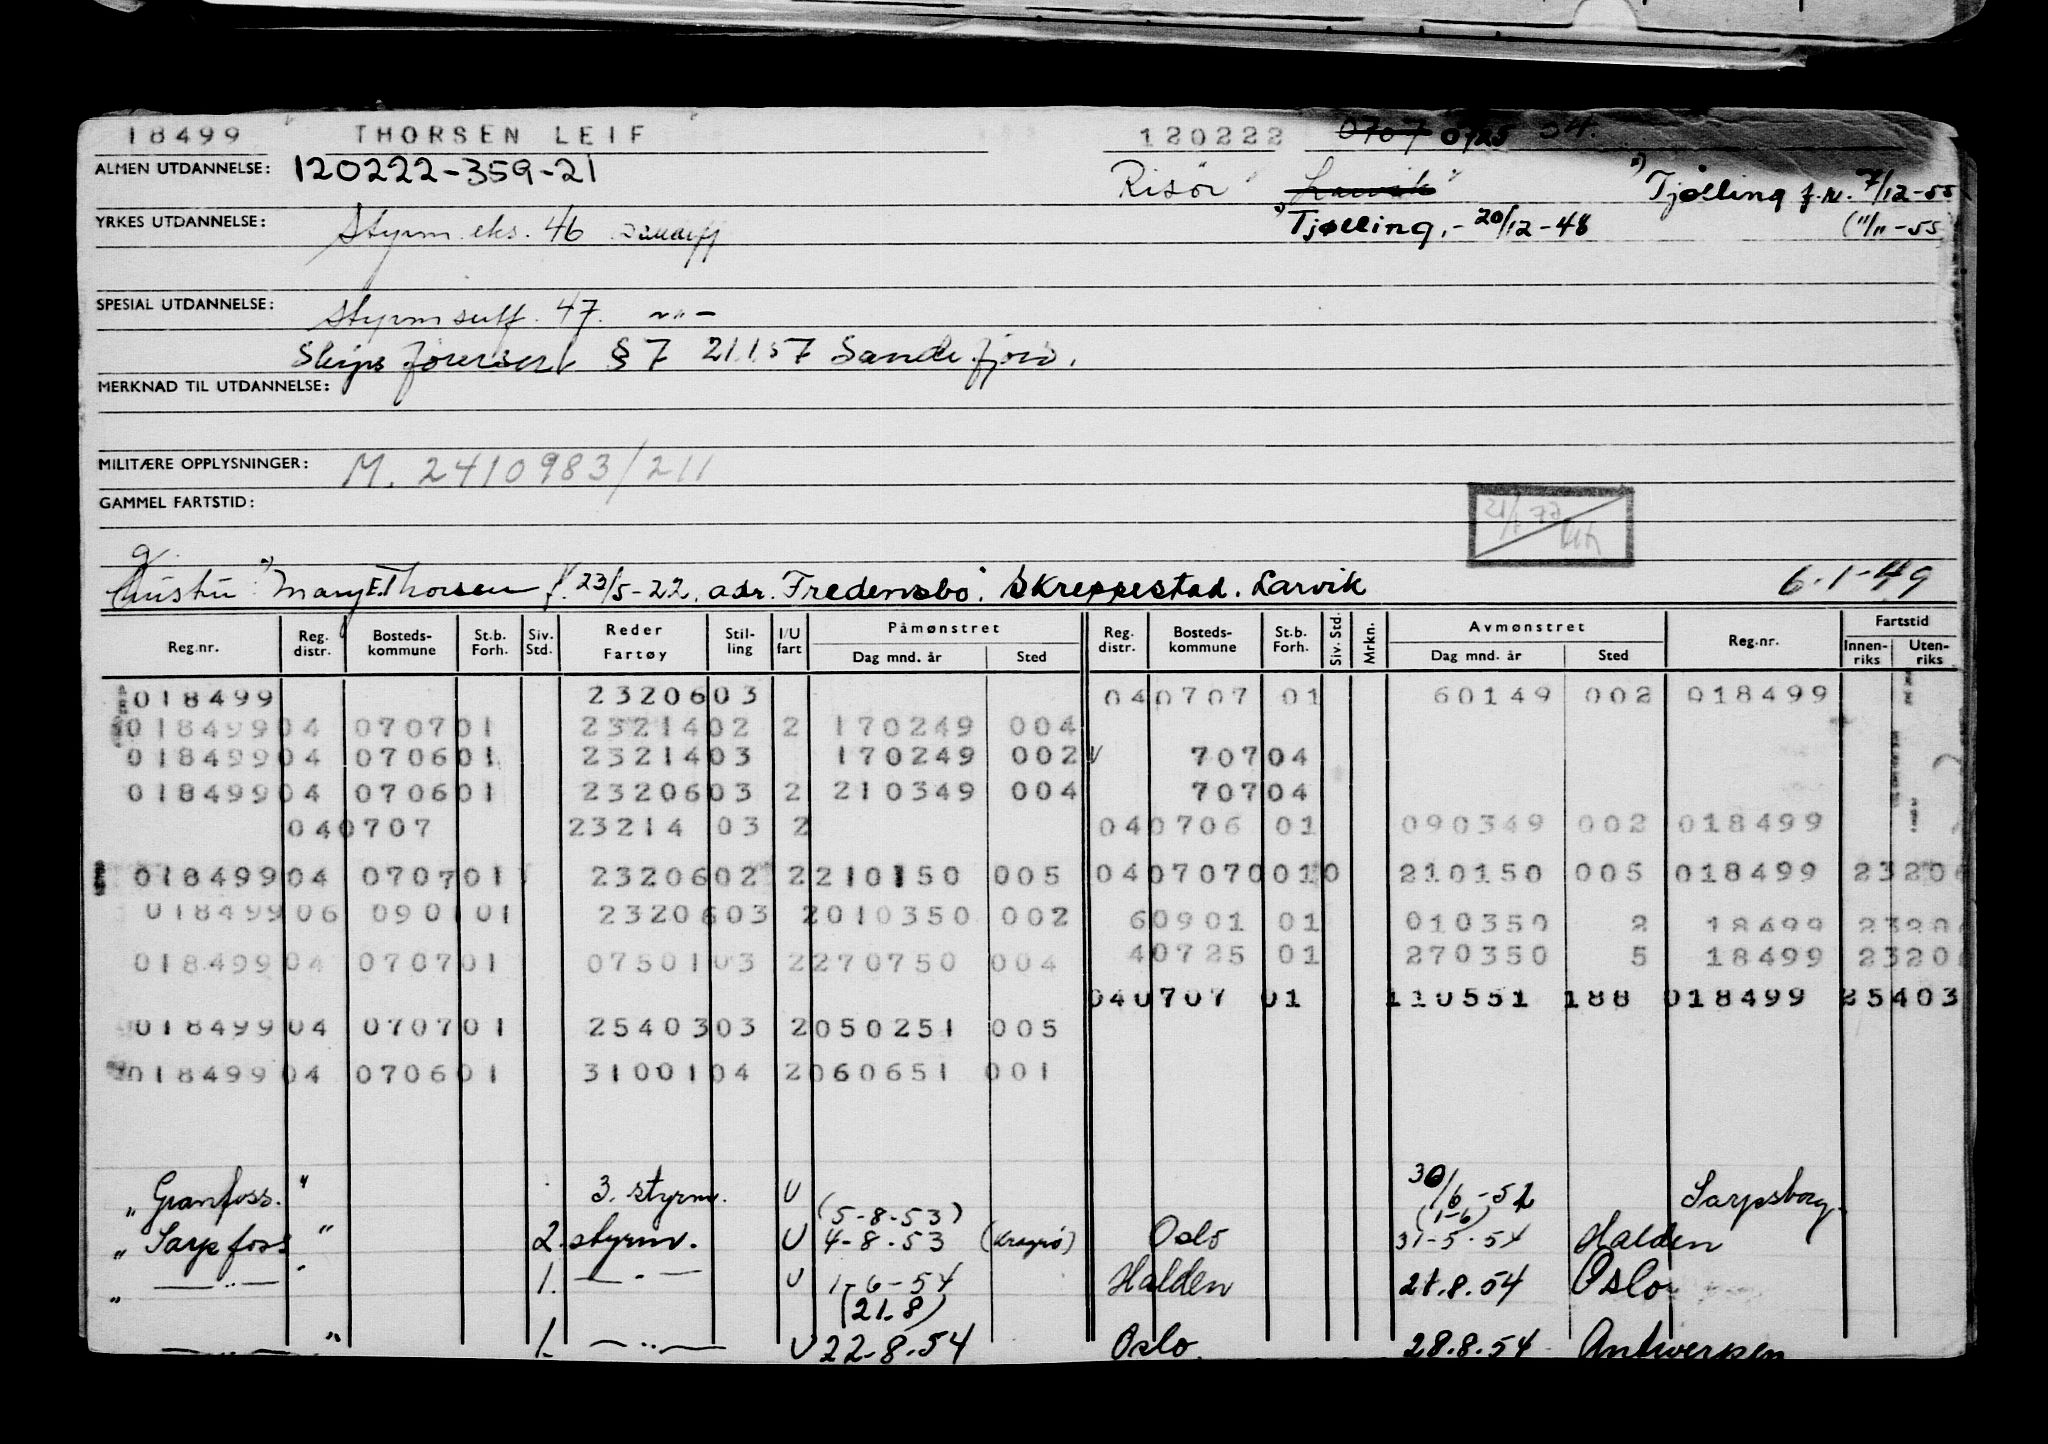 18499 THORSEN LEIF 120222 0707 0725 04.
ALMEN UTDANNELSE: 120222-359-21 Risør Larvik Tjølling f.r. 7/12-55
YRKES UTDANNELSE: Styrm.eks. 46 Tjølling.- 20/12-48 (11/11-55
SPESIAL UTDANNELSE: Styrmsertf. 47. -"-
Skipsførersert § 7 21157 Sandefjord.
MERKNAD TIL UTDANNELSE:
MILITÆRE OPPLYSNINGER: M. 2410983/211
GAMMEL FARTSTID:
21/1 77
g.
Hustru Mary E. Thorsen f. 23/5-22. adr. Fredensbo. Skreppestad. Larvik 6-1-49
Reg.nr. Reg. distr. Bosteds-kommune St.b. Forh. Siv. Std. Reder Fartøy Stil-ling I/U fart Påmønstret Dag mnd. år Sted Reg. distr. Bosteds-kommune St.b. Forh. Siv. Std. Mrkn. Avmønstret Dag mnd. år Sted Reg.nr. Fartstid Innen-riks Uten-riks
018499 2320603 040707 01 60149 002 018499
01849904 070701 2321402 2 170249 004
01849904 070601 2321403 170249 002 70704
01849904 070601 2320603 2 210349 004 70704
040707 23214 03 2 040706 01 090349 002 018499
01849904 070701 2320602 2210150 005 0407070010 210150 005 018499 2320
01849906 090101 2320603 2010350 002 60901 01 010350 2 18499 2320
01849904 070701 0750103 2270750 004 40725 01 270350 5 18499 2320
040707 01 110551 188 018499 25403
01849904 070701 2540303 2050251 005
01849904 070601 3100104 2060651 001
"Granfoss." 3. styrm. U 30/6-52 Sarpsborg.
(5-8-53) (1-6)
"Sarpfoss" 2. styrm. U 4-8-53 (Kragrø) Oslo 31-5-54 Halden
" —"— " 1. —"— U 1-6-54 Halden 21.8.54 Oslo
(21.8)
—"— " 1. —"— U 22-8-54 Oslo. 28.8.54 Antwerpen